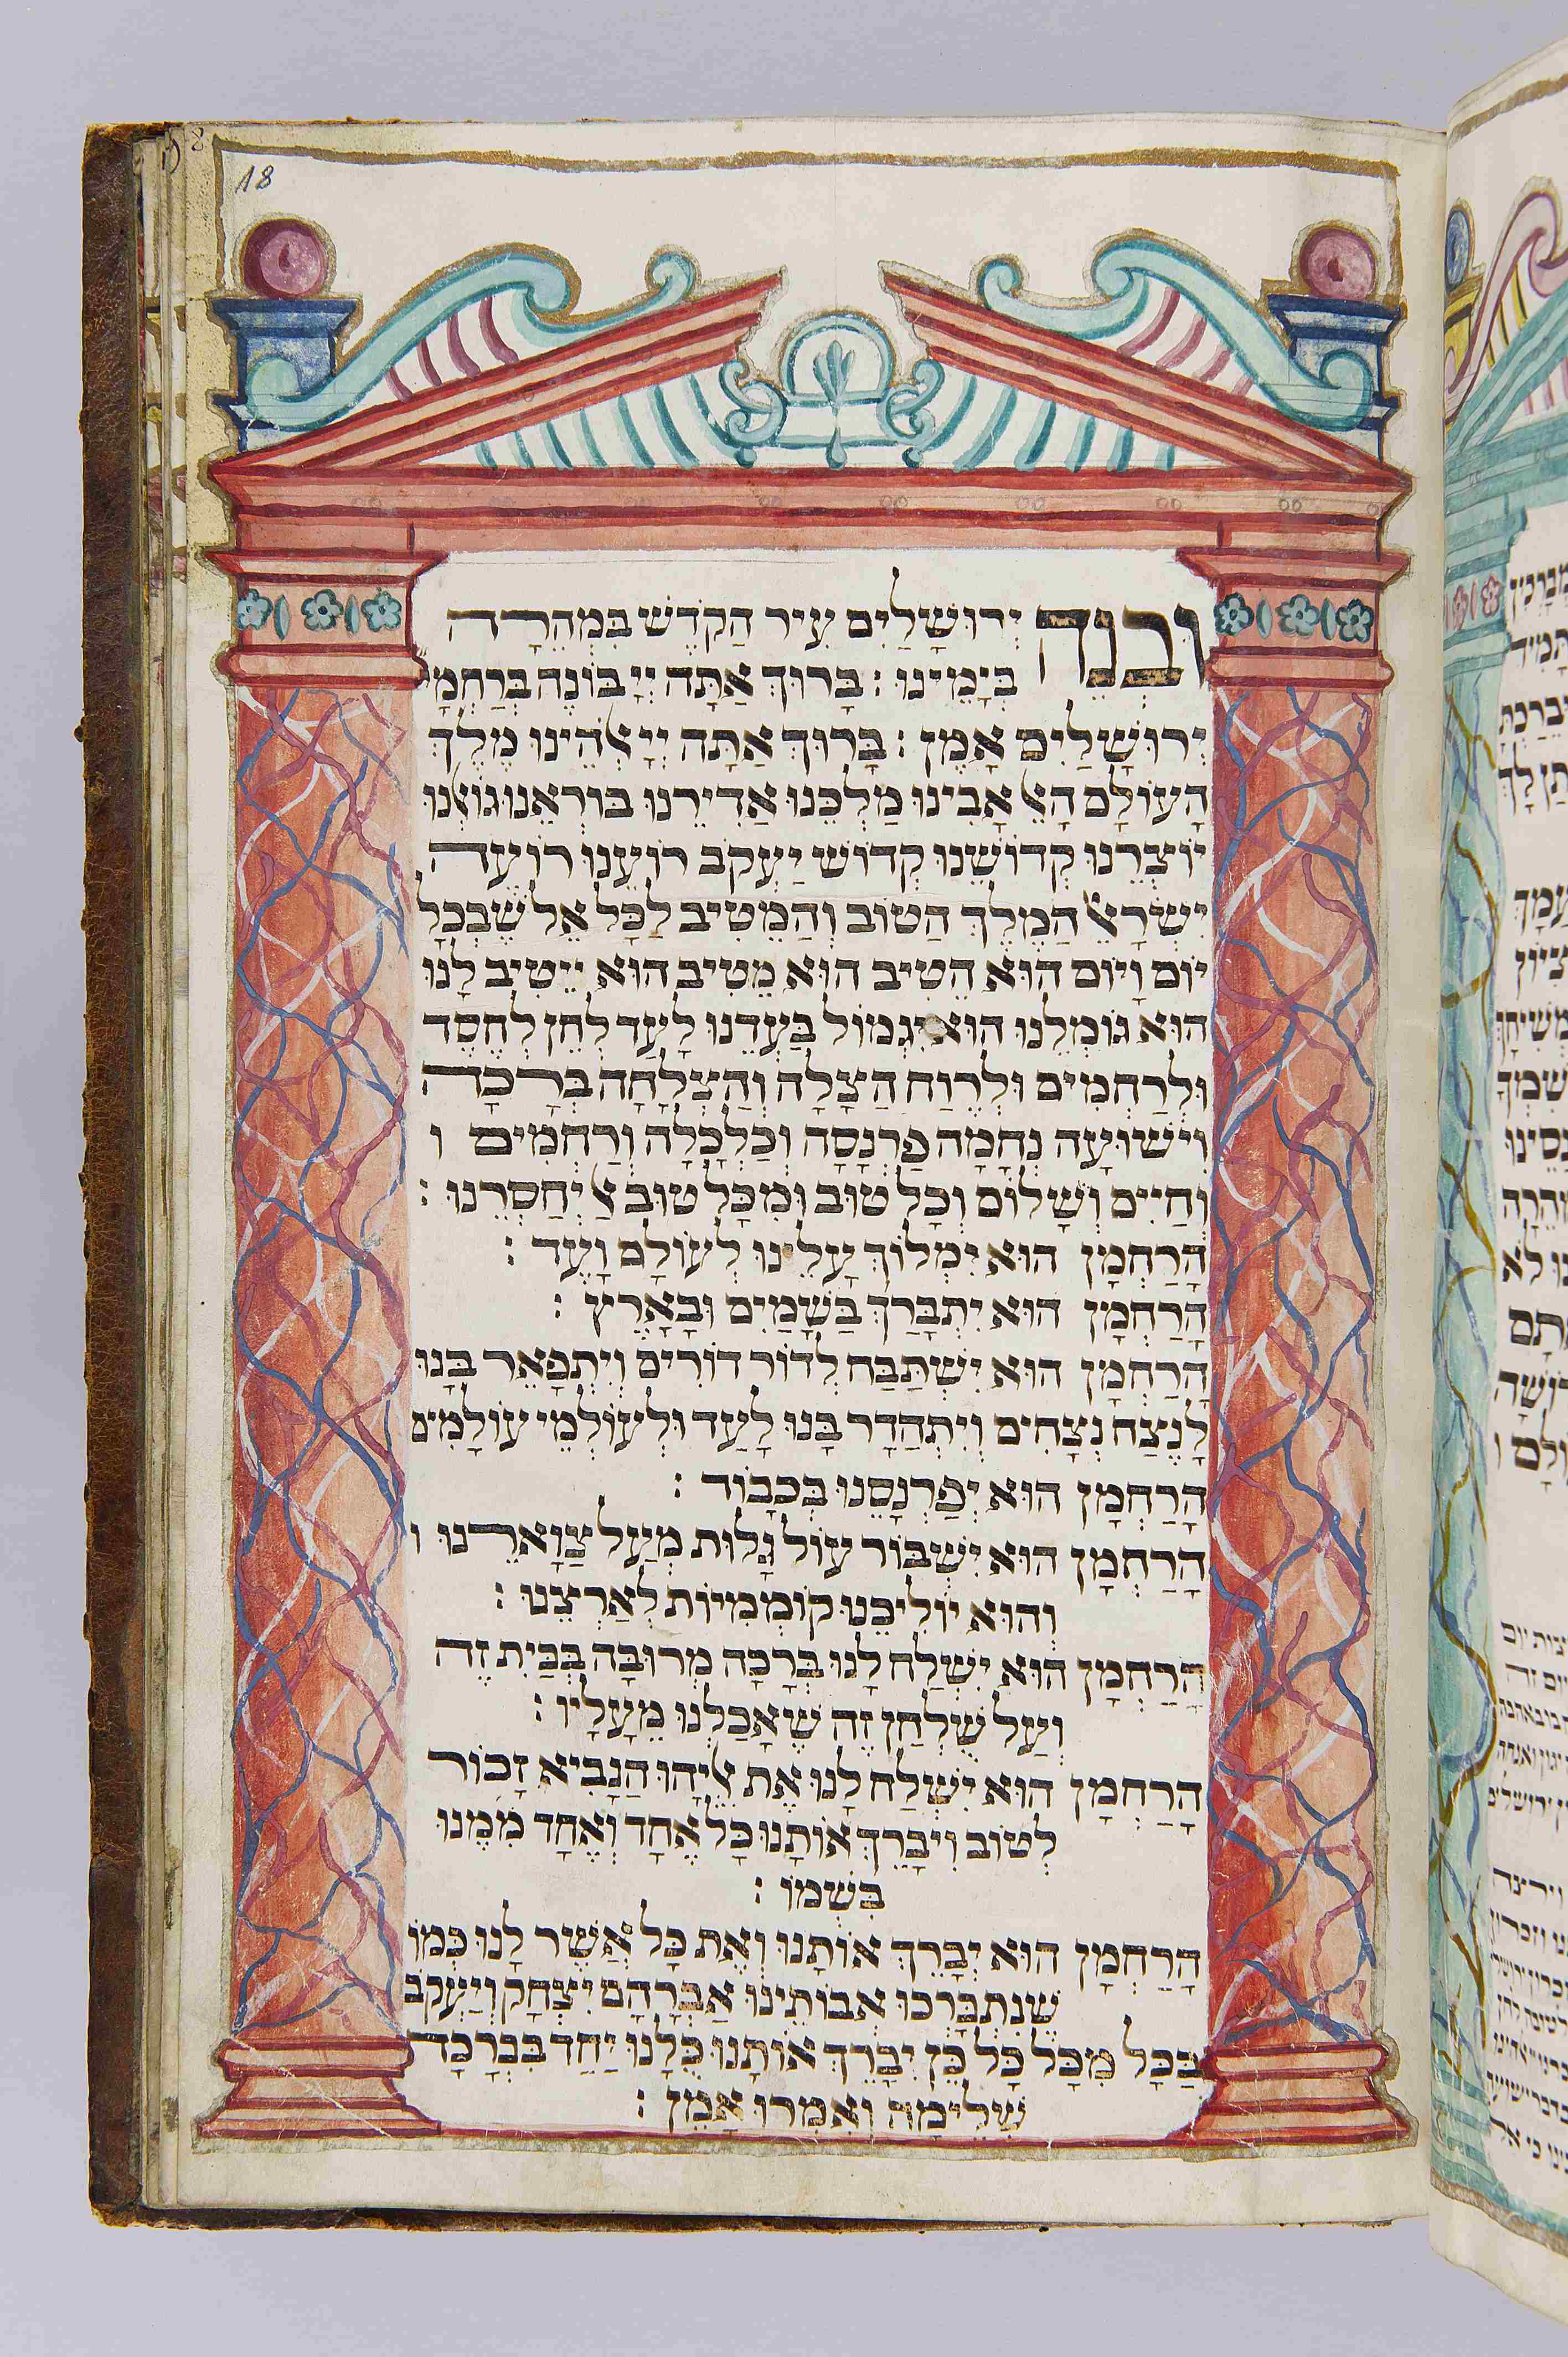 18
וּבְנֵה יְרוּשָׁלַיִם עִיר הַקֹדֶשׁ בִּמְהֵרָה
בְיָמֵינוּ : בָּרוּךְ אַתָּה יְיָ בּוֹנֶה בְרַחֲמָי
יְרוּשָׁלַיִם אָמֶן : בָּרוּךְ אַתָּה יְיָ אֱלֹהֵינוּ מֶלֶךְ
הָעוֹלָם הָאֵל אָבִינוּ מַלְכֵּנוּ אַדִירֵנוּ בּוֹרְאֵנוּ גוֹאֲלֵנוּ
יוֹצְרֵנוּ קְדוֹשֵׁנוּ קְדוֹשׁ יַעֲקֹב רוֹעֵנוּ רוֹעֵה
יִשְׂרָאֵל הַמֶלֶךְ הַטוֹב וְהַמֵטִיב לַכָּל אֵל שֶׁבְּכָל
יוֹם וָיוֹם הוּא הֵטִיב הוּא מֵטִיב הוּא יֵיטִיב לָנוּ
הוּא גוֹמְלֵנוּ הוּא יִגְמוֹל בַּעֲדֵנוּ לָעַד לְחֵן לְחֶסֶד
וּלְרַחֲמִים וּלְרֶוַח הַצָלָה וְהַצְלָחָה בְּרָכָה
וִישׁוּעָה נֶחָמָה פַרְנָסָה וְכַלְכָּלָה וְרַחֲמִים ו
וְחַיִים וְשָׁלוֹם וְכָל טוּב וּמִכָּל טוּב אַל יְחַסְרֵנוּ :
הָרַחֲמָן הוּא יִמְלוֹךְ עָלֵינוּ לְעוֹלָם וָעֶד :
הָרַחֲמָן הוּא יִתְבָּרַךְ בַּשָׁמַיִם וּבָאָרֶץ :
הָרַחֲמָן הוּא יִשְׁתַּבַּח לְדוֹר דוֹרִים וְיִתְפָּאֵר בָּנוּ
לָנֶצַח נְצָחִים וְיִתְהַדָר בָּנוּ לָעַד וּלְעוֹלְמֵי עוֹלָמִים
הָרַחֲמָן הוּא יְפַרְנְסֵנוּ בְּכָבוֹד :
הָרַחֲמָן הוּא יִשְׁבּוֹר עוֹל גָלוּת מֵעַל צַוָארֵנוּ ו
וְהוּא יוֹלִיכֵנוּ קוֹמְמִיוֹת לְאַרְצֵנוּ :
הָרַחֲמָן הוּא יִשְׁלַח לָנוּ בְּרָכָה מְרוּבָּה בְּבַיִת זֶה
וְעַל שֻׁלְחַן זֶה שֶׁאָכַלְנוּ מֵעָלָיו :
הָרַחֲמָן הוּא יִשְׁלַח לָנוּ אֶת אֵלִיָהוּ הַנָבִיא זָכוּר
לְטוֹב וִיבָרֵךְ אוֹתָנוּ כָּל אֶחָד וְאֶחָד מִמֶנוּ
בִּשְׁמוֹ :
הָרַחֲמָן הוּא יְבָרֵךְ אוֹתָנוּ וְאֶת כָּל אֲשֶׁר לָנוּ כְּמוֹ
שֶׁנִתְבָּרְכוּ אֲבוֹתֵינוּ אַבְרָהָם יִצְחָק וְיַעֲקֹב
בַּכָּל מִכָּל כָּל כֵּן יְבָרֵךְ אוֹתָנוּ כֻּלָנוּ יַחַד בִּבְרָכָה
שְׁלֵימָה וְאִמְרוּ אָמֵן :